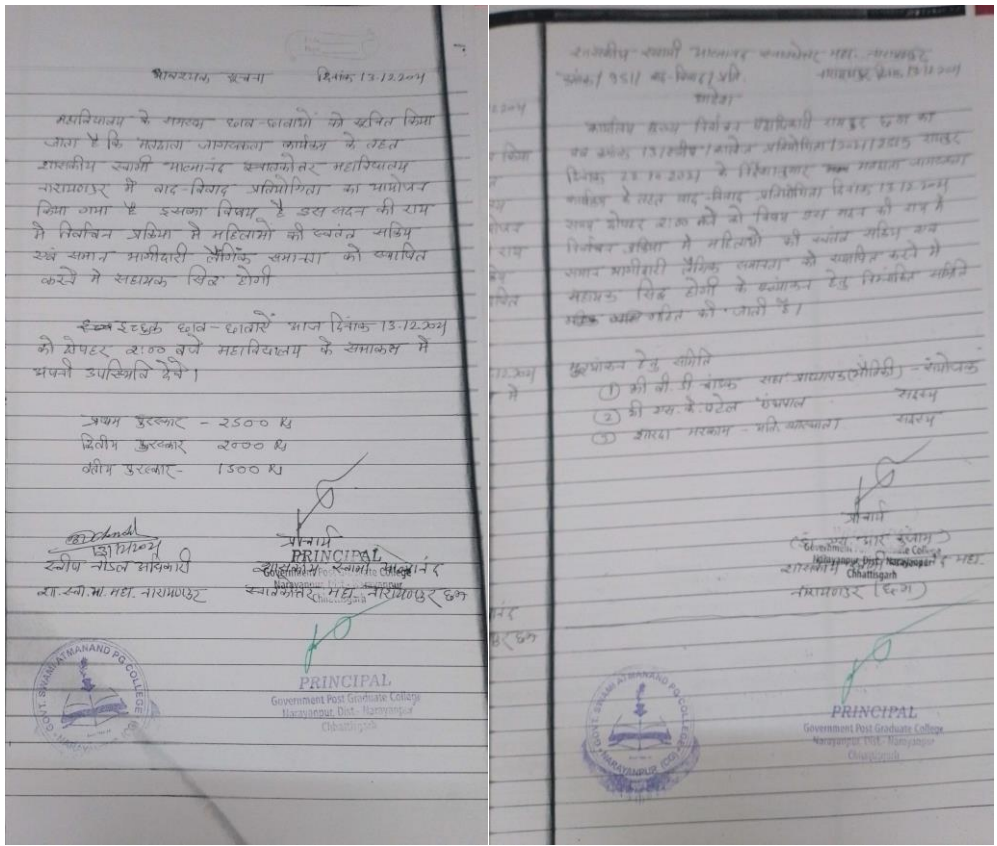 आवश्यक सूचना दिनांक 13.12.2021
महाविद्यालय के समस्त छात्र-छात्राओं को सूचित किया
जाता है कि मतदाता जागरूकता कार्यक्रम के तहत
शासकीय स्वामी आत्मानंद स्नातकोत्तर महाविद्यालय
नारायणपुर में वाद-विवाद प्रतियोगिता का आयोजन
किया गया है इसका विषय है इस सदन की राय
में निर्वाचन प्रक्रिया में महिलाओं की स्वतंत्र सक्रिय
एवं समान भागीदारी लैंगिक समानता को स्थापित
करने में सहायक सिद्ध होगी
इच्छुक छात्र-छात्राऐं आज दिनांक 13-12-2021
को दोपहर 2:00 बजे महाविद्यालय के सभाकक्ष में
अपनी उपस्थिति देवें।
प्रथम पुरस्कार - 2500 Rs
द्वितीय पुरस्कार 2000 Rs
तृतीय पुरस्कार- 1500 Rs
13/12/2021
स्वीप नोडल अधिकारी
शा. स्वा. आ. महा. नारायणपुर
प्राचार्य
PRINCIPAL
शासकीय स्वामी आत्मानंद
Government Post Graduate College
Narayanpur, Dist.- Narayanpur
Chhattisgarh
स्नातकोत्तर महा. नारायणपुर छ.ग
GOVT. SWAMI ATMANAND PG COLLEGE
NARAYANPUR (CG)
PRINCIPAL
Government Post Graduate College
Narayanpur, Dist.- Narayanpur
Chhattisgarh
शासकीय स्वामी आत्मानंद स्नातकोत्तर महा. नारायणपुर
क्रमांक/951/वाद-विवाद/प्रति. नारायणपुर दिनांक 13.12.2021
आदेश
कार्यालय मुख्य निर्वाचन पदाधिकारी रायपुर छ.ग का
पत्र क्रमांक 13/स्वीप/ प्रतियोगिता/2021/ रायपुर
दिनांक के निर्देशानुसार मतदाता जागरूकता
कार्यक्रम के तहत वाद-विवाद प्रतियोगिता दिनांक 13.12.2021
समय दोपहर 2:00 बजे को विषय इस सदन की राय में
निर्वाचन प्रक्रिया में महिलाओं की स्वतंत्र सक्रिय एवं
समान भागीदारी लैंगिक समानता को स्थापित करने में
सहायक सिद्ध होगी के मूल्यांकन हेतु निम्नांकित समिति
गठित की जाती है।
मूल्यांकन हेतु समिति
(1) श्री बी. डी चांडक सहा प्राध्यापक (भौतिकी) - संयोजक
(2) श्री एस. के. पटेल ग्रंथपाल सदस्य
(3) शारदा मरकाम - अति. व्याख्याता सदस्य
प्राचार्य
(डॉ. एस. आर कुंजाम)
शासकीय स्वामी आत्मानंद महा.
Chhattisgarh
नारायणपुर (छ.ग)
GOVT. SWAMI ATMANAND PG COLLEGE
NARAYANPUR (CG)
PRINCIPAL
Government Post Graduate College
Narayanpur, Dist.- Narayanpur
Chhattisgarh